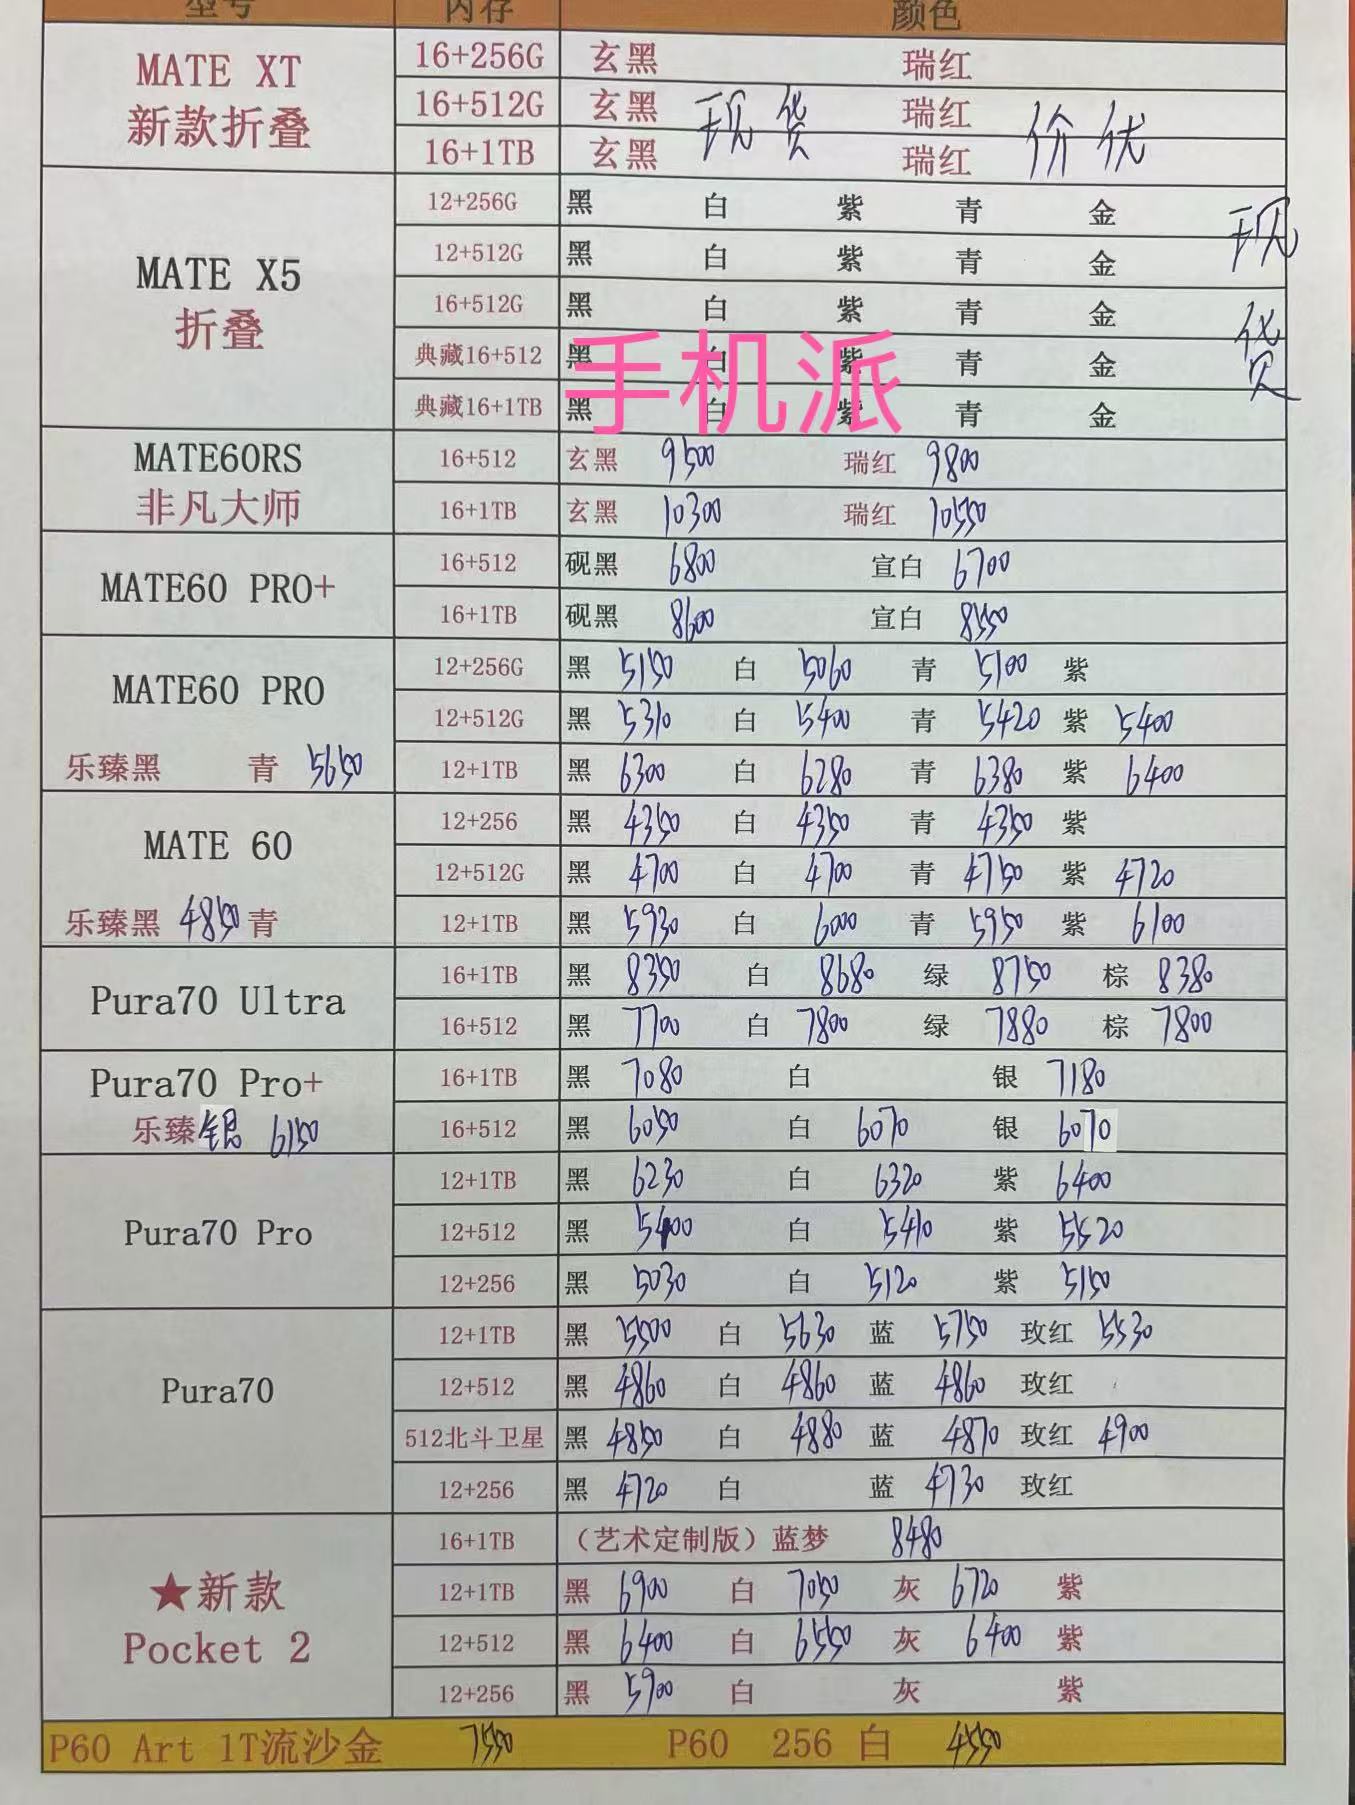 型号 内存 颜色
MATE XT 16+256G 玄黑 瑞红
新款折叠 16+512G 玄黑 现货 瑞红 价优
16+1TB 玄黑 瑞红
12+256G 黑 白 紫 青 金 现货
MATE X5 12+512G 黑 白 紫 青 金
折叠 16+512G 黑 白 紫 青 金
典藏16+512 黑 白 紫 青 金
手机派
典藏16+1TB 黑 白 紫 青 金
MATE60RS 16+512 玄黑 9500 瑞红 9800
非凡大师 16+1TB 玄黑 10300 瑞红 10550
MATE60 PRO+ 16+512 砚黑 6800 宣白 6700
16+1TB 砚黑 8600 宣白 8550
MATE60 PRO 12+256G 黑 5150 白 5060 青 5100 紫
12+512G 黑 5310 白 5400 青 5420 紫 5400
乐臻黑 青 5650 12+1TB 黑 6300 白 6280 青 6380 紫 6400
MATE 60 12+256 黑 4350 白 4350 青 4350 紫
12+512G 黑 4700 白 4700 青 4750 紫 4720
乐臻黑 4850 青 12+1TB 黑 5930 白 6000 青 5950 紫 6100
Pura70 Ultra 16+1TB 黑 8350 白 8680 绿 8750 棕 8380
16+512 黑 7700 白 7800 绿 7880 棕 7800
Pura70 Pro+ 16+1TB 黑 7080 白 银 7180
乐臻银 6150 16+512 黑 6050 白 6070 银 6070
12+1TB 黑 6230 白 6320 紫 6400
Pura70 Pro 12+512 黑 5400 白 5410 紫 5520
12+256 黑 5030 白 5120 紫 5150
12+1TB 黑 5500 白 5630 蓝 5750 玫红 5530
Pura70 12+512 黑 4860 白 4860 蓝 4860 玫红
512北斗卫星 黑 4850 白 4880 蓝 4870 玫红 4900
12+256 黑 4720 白 蓝 4730 玫红
16+1TB （艺术定制版）蓝梦 8480
★新款 12+1TB 黑 6900 白 7050 灰 6720 紫
Pocket 2 12+512 黑 6400 白 6550 灰 6400 紫
12+256 黑 5900 白 灰 紫
P60 Art 1T流沙金 7550 P60 256 白 4550